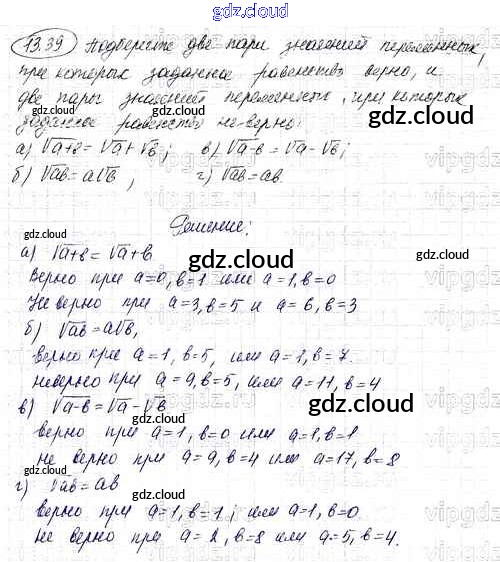 gdz.cloud
13.39 Подберите две пары значений переменных,
при которых заданное равенство верно, и
две пары значений переменных, при которых
заданное равенство не верно:
а) √a+b = √a + √b; в) √a-b = √a - √b;
б) √ab = a√b, г) √ab = ab.
gdz.cloud gdz.cloud
gdz.cloud
Решение:
а) √a+b = √a + b
gdz.cloud
Верно при a=0, b=1 или a=1, b=0
Не верно при a=3, b=5 и a=6, b=3
б) √ab = a√b,
верно при a=1, b=5, или a=1, b=7.
неверно при a=9, b=5, или a=11, b=4
в) √a-b = √a - √b
gdz.cloud
верно при a=1, b=0 или a=1, b=1
не верно при a=9, b=4 или a=17, b=8
г) √ab = ab
gdz.cloud gdz.cloud
верно при a=1, b=1; или a=1, b=0.
Не верно при a=2, b=8 или a=5, b=4.
gdz.cloud